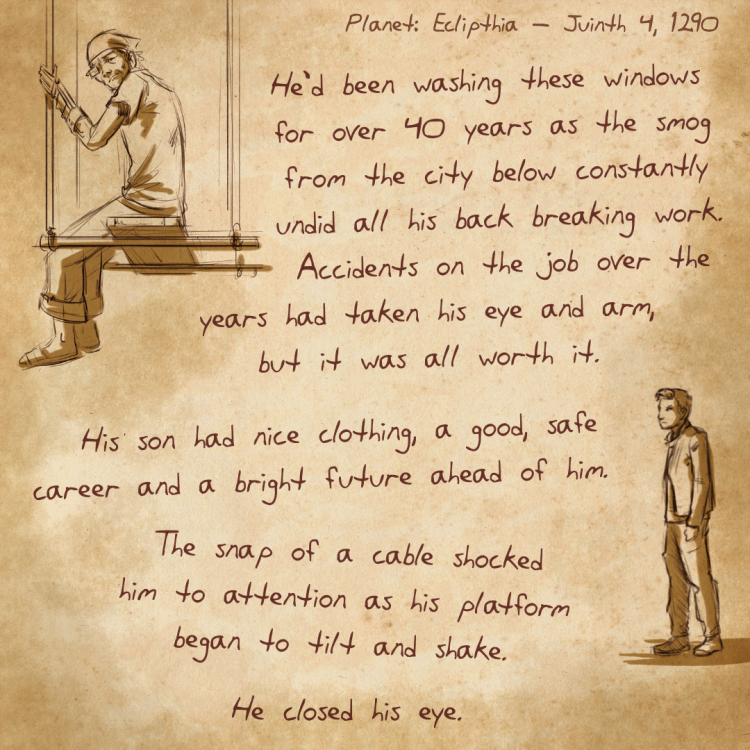 Planet: Eclipthia — Juinth 4, 1290
He'd been washing these windows
for over 40 years as the smog
from the city below constantly
undid all his back breaking work.
Accidents on the job over the
years had taken his eye and arm,
but it was all worth it.
His son had nice clothing, a good, safe
career and a bright future ahead of him.
The snap of a cable shocked
him to attention as his platform
began to tilt and shake.
He closed his eye.